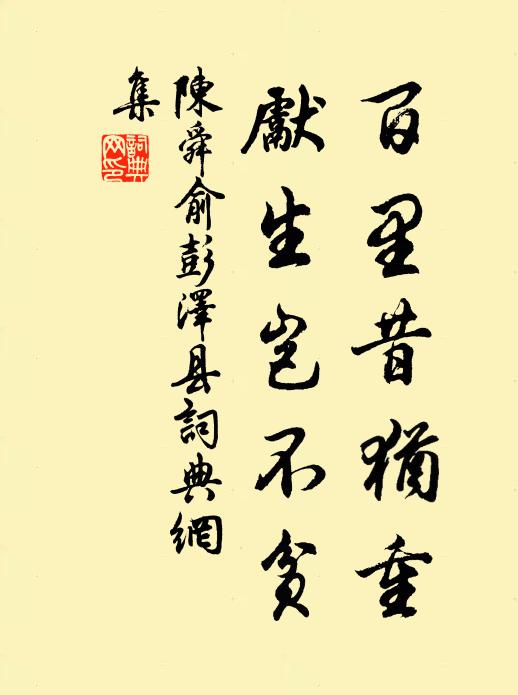 百里昔猶重
獻生岂不貧
陳舜俞彭澤县詞典網
集
詞典
网印